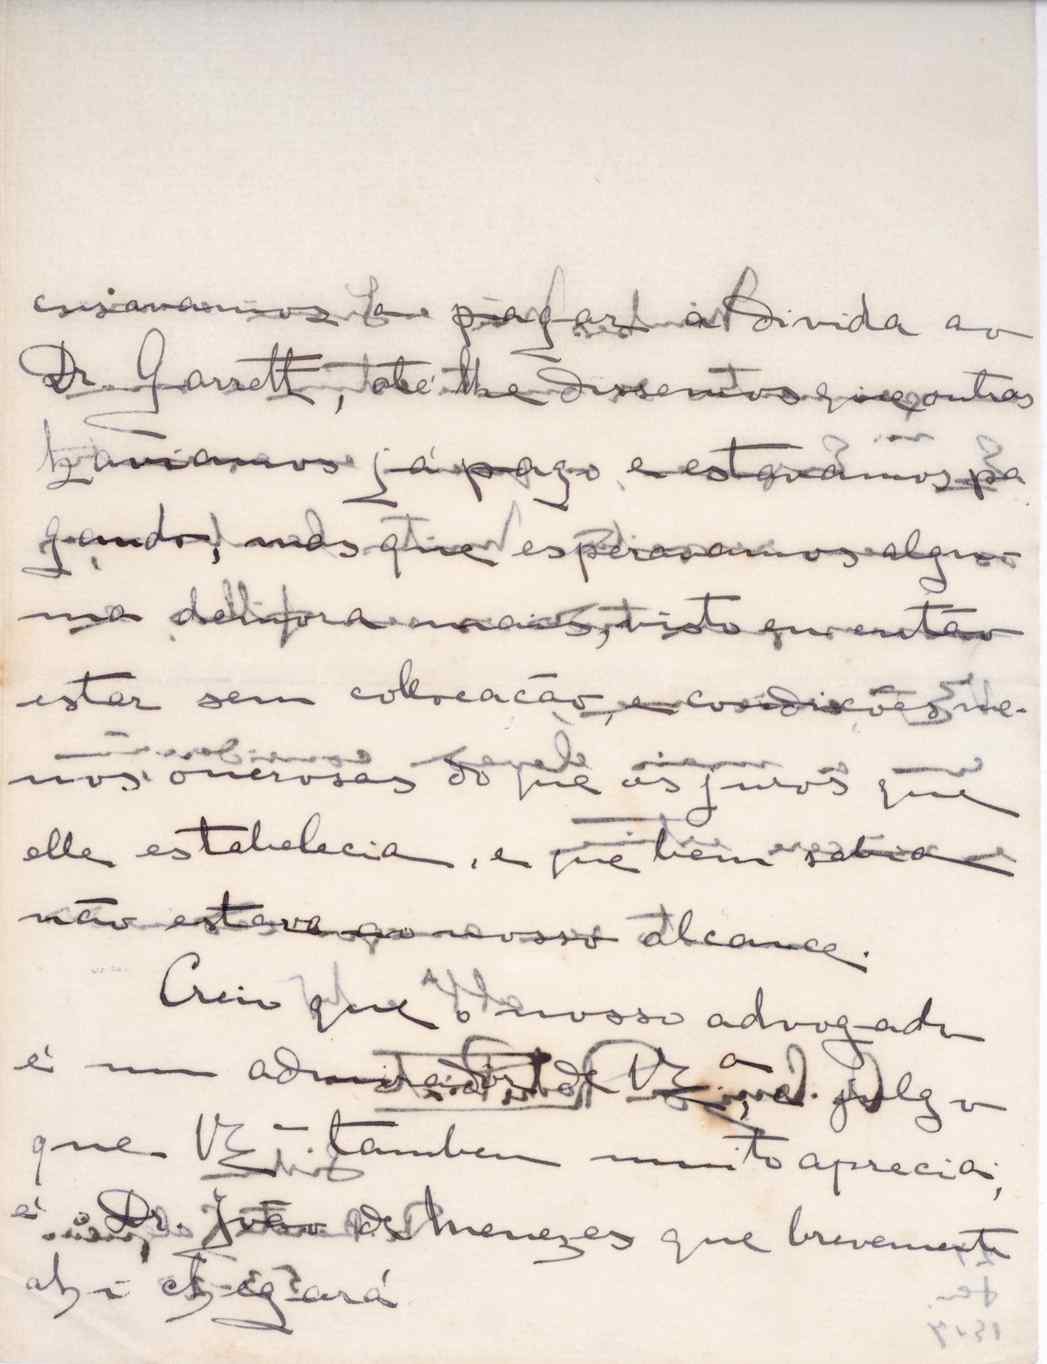 a pagar a divida ao
Dr. Garrett, até lhe dissemos que outras
haviamos já pago e estavamos pa
gando, mas que esperavamos algu-
ma dellifora mais, visto que então
estar sem collocacão, e condições me-
nos onerosas do que os juros que
elle estabelecia, e que bem sabia
não estava ao nosso alcance.
Creio que o nosso advogado
é um admirador de V Exª, e julgo
que V Ex. tambem muito aprecia;
é o Dr. João de Menezes que brevemente
ahi chegará